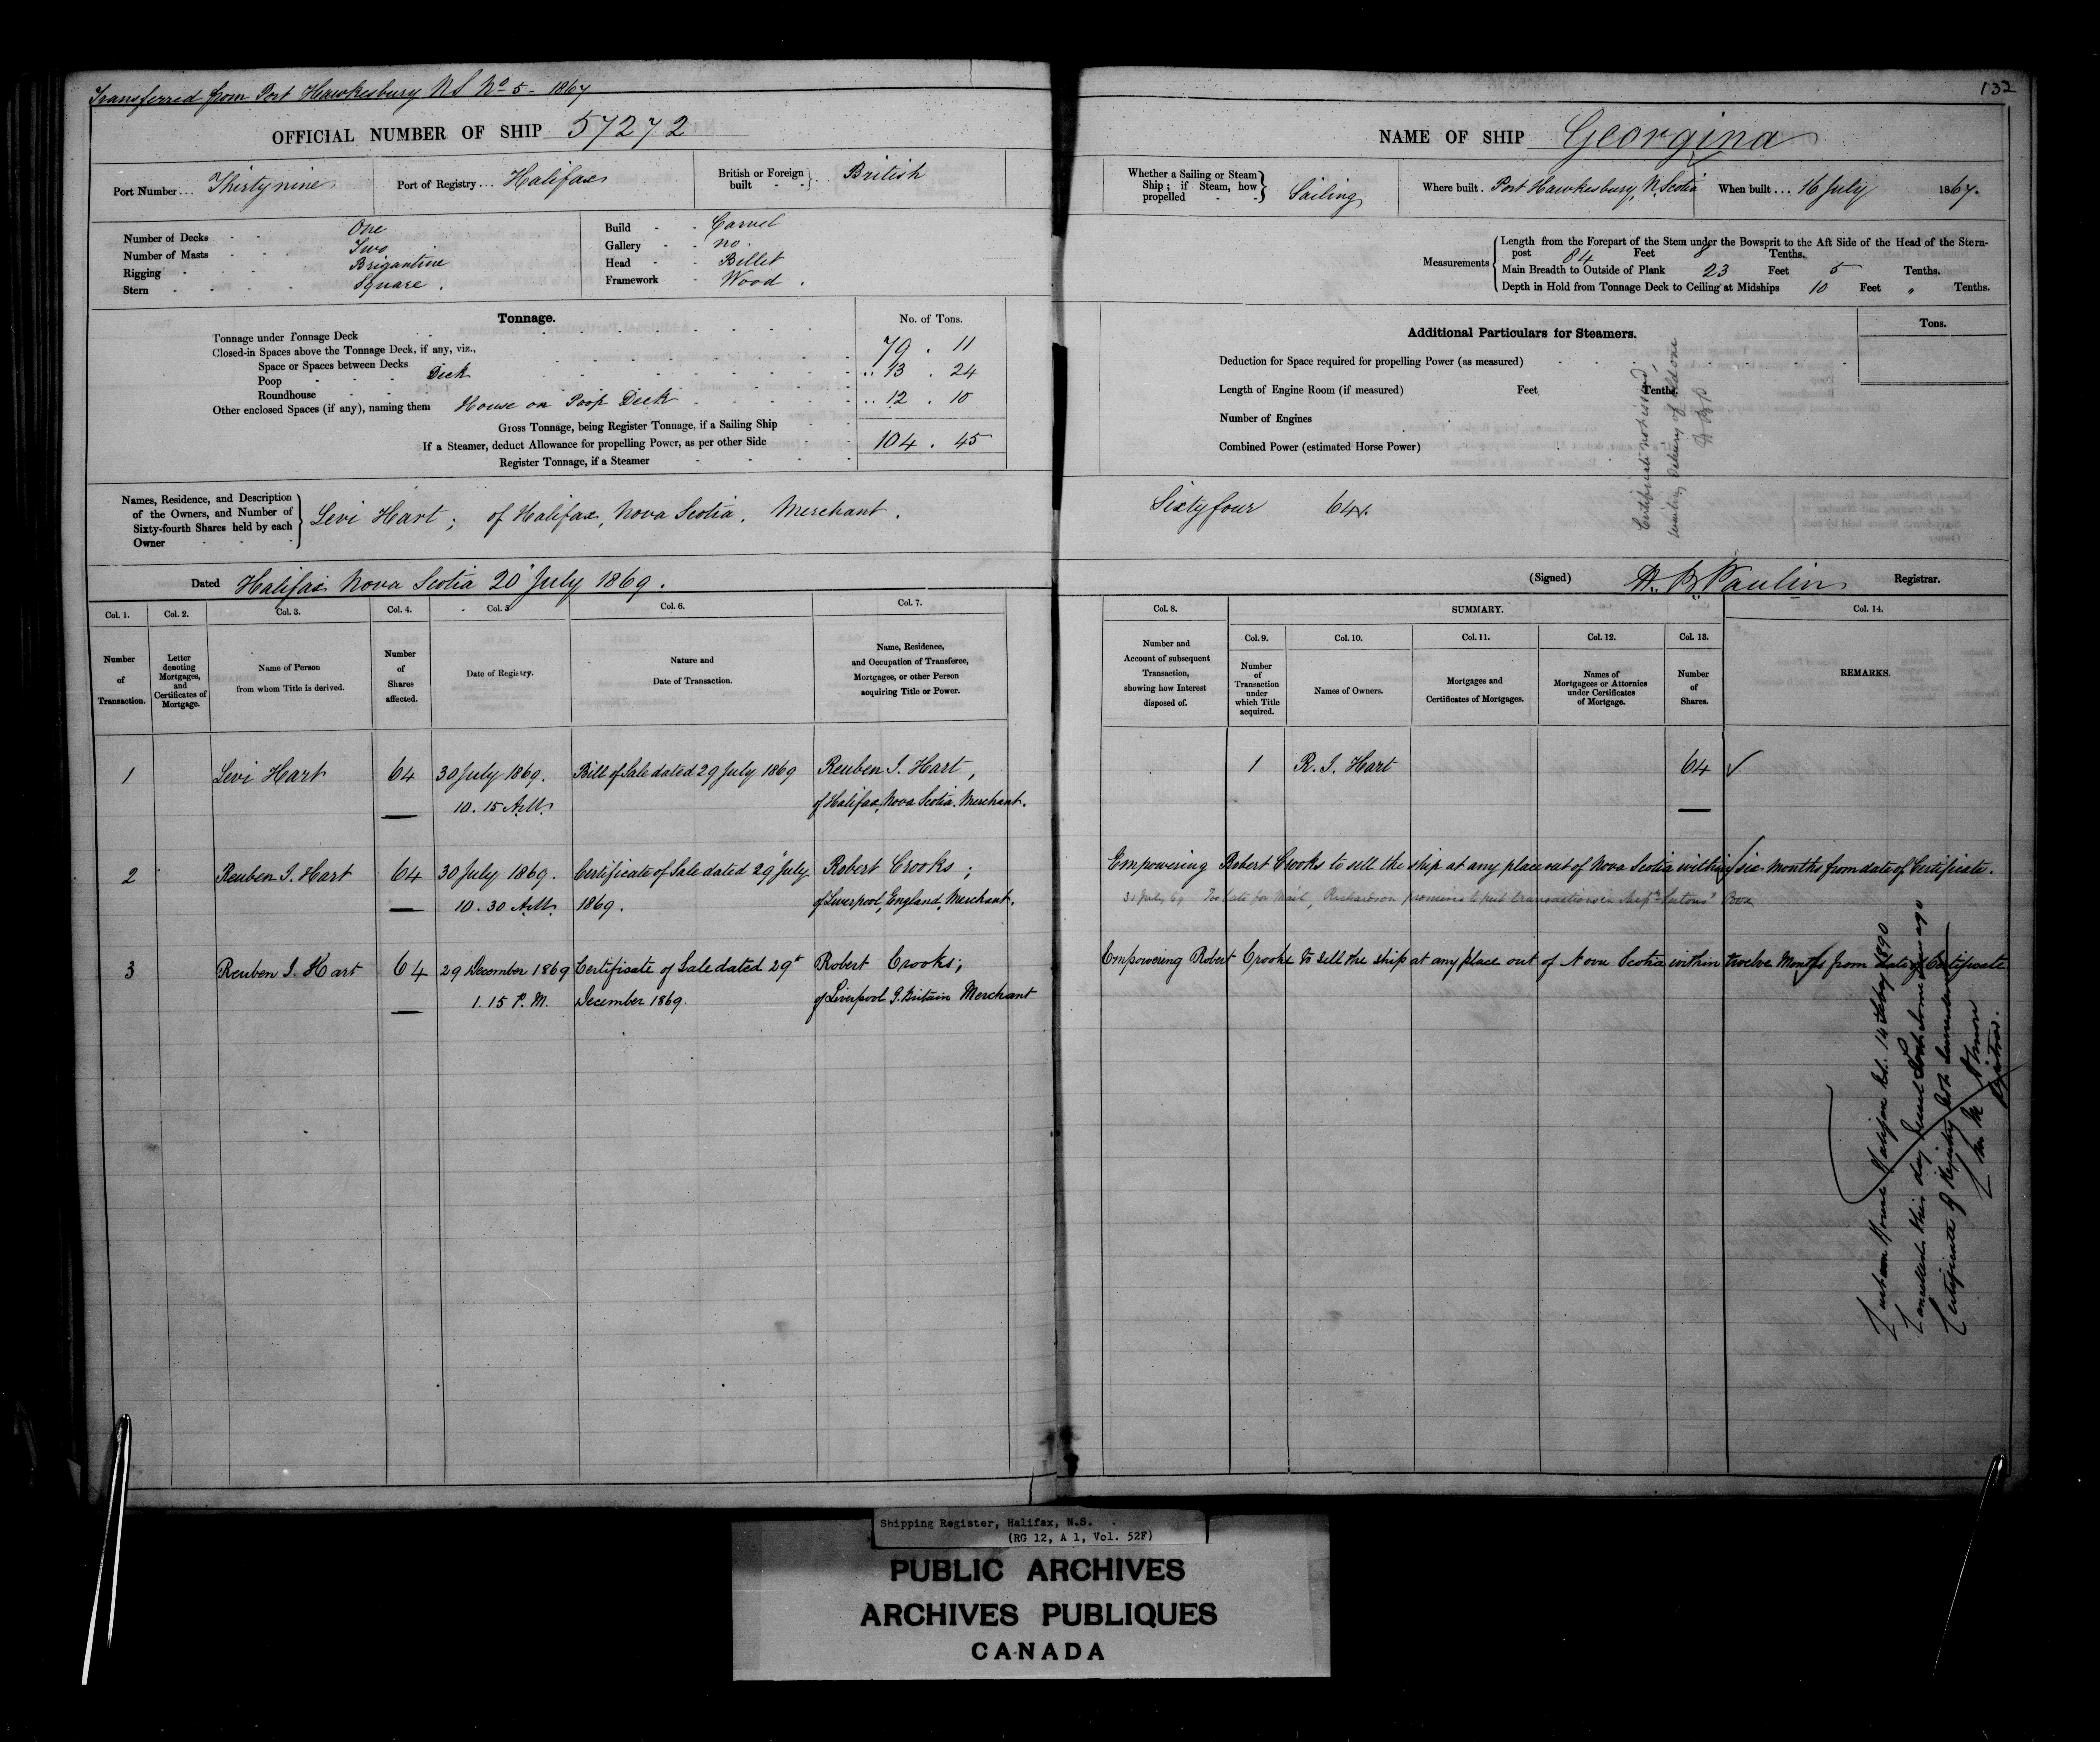 Transferred from Port Hawkesbury N S No 5 - 1867
OFFICIAL NUMBER OF SHIP 57272
Port Number... Thirty nine
Port of Registry... Halifax
British or Foreign built - - } British
Number of Decks - - One
Number of Masts - - Two
Rigging - - Brigantine
Stern - - - Square.
Build - - Carvel
Gallery - - no.
Head - - Billet
Framework - Wood.
Tonnage.
No. of Tons.
Tonnage under Tonnage Deck 79 . 11
Closed-in Spaces above the Tonnage Deck, if any, viz.,
Space or Spaces between Decks
Poop - - - Deck 13 . 24
Roundhouse
Other enclosed Spaces (if any), naming them House on Poop Deck 12 . 10
Gross Tonnage, being Register Tonnage, if a Sailing Ship
If a Steamer, deduct Allowance for propelling Power, as per other Side 104 . 45
Register Tonnage, if a Steamer
Names, Residence, and Description
of the Owners, and Number of
Sixty-fourth Shares held by each
Owner
Levi Hart; of Halifax, Nova Scotia. Merchant.
Dated Halifax Nova Scotia 20 July 1869.
Col. 1. Col. 2. Col. 3. Col. 4. Col. 5 Col. 6. Col. 7.
Number of Transaction.
Letter denoting Mortgages, and Certificates of Mortgage.
Name of Person from whom Title is derived.
Number of Shares affected.
Date of Registry.
Nature and Date of Transaction.
Name, Residence, and Occupation of Transferee, Mortgagee, or other Person acquiring Title or Power.
1 Levi Hart 64 30 July 1869. Bill of Sale dated 29 July 1869 Reuben I. Hart,
10. 15 A.M. of Halifax, Nova Scotia. Merchant.
2 Reuben I. Hart 64 30 July 1869. Certificate of Sale dated 29 July Robert Crooks;
10. 30 A.M. 1869. of Liverpool, England, Merchant.
3 Reuben I. Hart 64 29 December 1869 Certificate of Sale dated 29th Robert Crooks;
1. 15 P. M. December 1869. of Liverpool G. Britain Merchant
132
NAME OF SHIP Georgina
Whether a Sailing or Steam Ship; if Steam, how propelled - - } Sailing
Where built. Port Hawkesbury, N. Scotia
When built... 16 July 1867.
Measurements
Length from the Forepart of the Stem under the Bowsprit to the Aft Side of the Head of the Stern-
post 84 Feet 8 Tenths.
Main Breadth to Outside of Plank 23 Feet 5 Tenths.
Depth in Hold from Tonnage Deck to Ceiling at Midships 10 Feet " Tenths.
Additional Particulars for Steamers.
Tons.
Deduction for Space required for propelling Power (as measured)
Length of Engine Room (if measured) Feet Tenths.
Number of Engines
Combined Power (estimated Horse Power)
Certificate not issued,
waiting delivery of old one
Sixty four 64.
(Signed) H. B. Paulin Registrar.
Col. 8. SUMMARY. Col. 14.
Col. 9. Col. 10. Col. 11. Col. 12. Col. 13.
Number and Account of subsequent Transaction, showing how Interest disposed of.
Number of Transaction under which Title acquired.
Names of Owners.
Mortgages and Certificates of Mortgages.
Names of Mortgagees or Attornies under Certificates of Mortgage.
Number of Shares.
REMARKS.
1 R. I. Hart 64
Empowering Robert Crooks to sell the ship at any place out of Nova Scotia within six months from date of Certificate.
30 July 69 Too late for Mail, Richardson promises to put transactions in Box
Empowering Robert Crooks to sell the ship at any place out of Nova Scotia within twelve Months from date of Certificate
Custom House Halifax 14 Feby 1890
Cancelled this day
Certificate of Registry not surrendered
Registrar.
Shipping Register, Halifax, N.S.
(RG 12, A 1, Vol. 52F)
PUBLIC ARCHIVES
ARCHIVES PUBLIQUES
CANADA